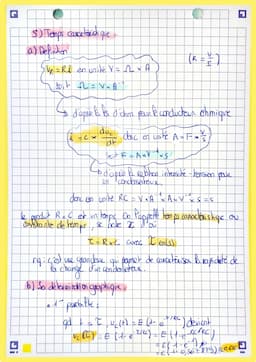 3) Temps caractéristique
a) Définition
U_R = R.i en unité V = Ω × A
[R = V/I]
soit Ω = V × A⁻¹
→ d'après la loi d'ohm pour le conducteur ohmique
i = C × du_c/dt donc en unité A = F × V/s
soit F = A × V⁻¹ × s
→ d'après la relation intensité-tension pour un condensateur.
donc en unité RC = V × A⁻¹ × A × V⁻¹ × s = s
le produit R × C est un temps. On l'appelle temps caractéristique ou
constante de temps, se note τ
τ = R × C avec τ en (s)
rq : c'est une grandeur qui permet de caractériser la rapidité de
la charge d'un condensateur.
b) Sa détermination graphique
• 1ère
qd t = τ, u_c(t) = E(1-e^(-t/RC)) devient
u_c(τ) = E(1-e^(-τ/RC)) = E(1-e^(-RC/RC))
= E(1-e⁻¹)